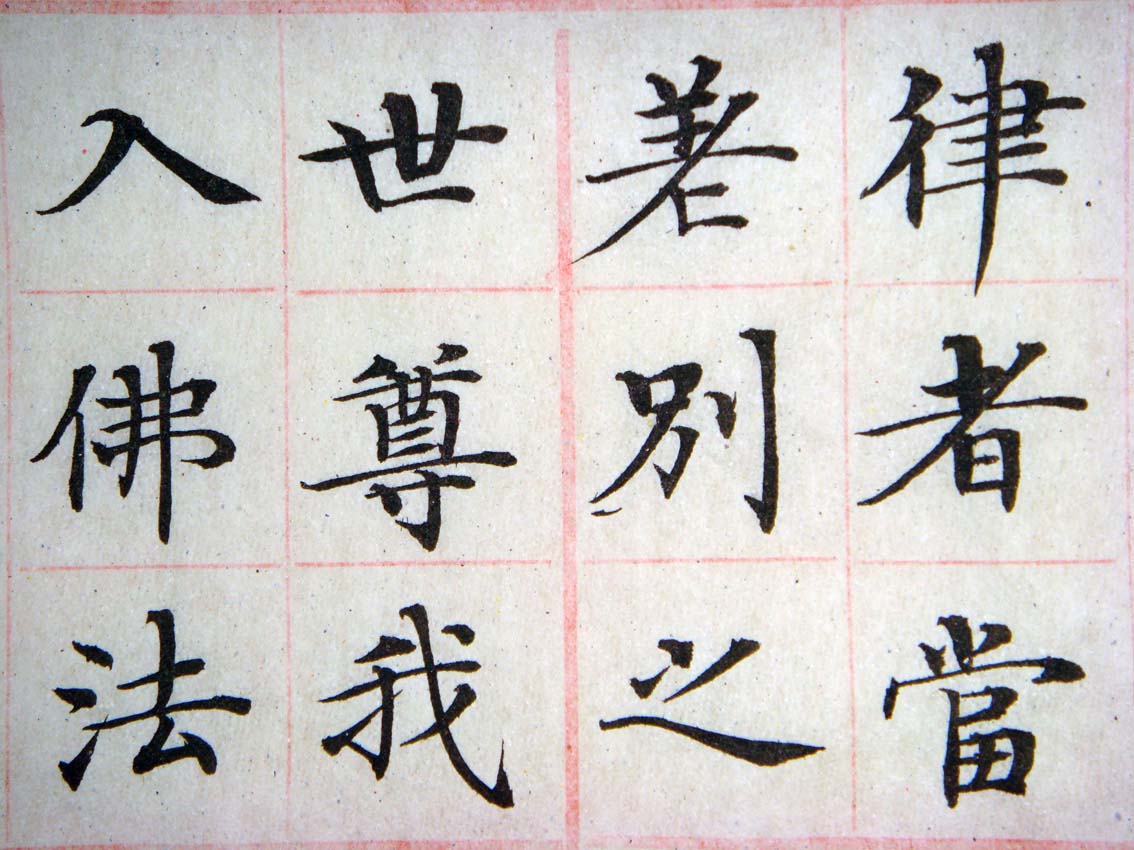 律者當
差別之
世尊我
入佛法